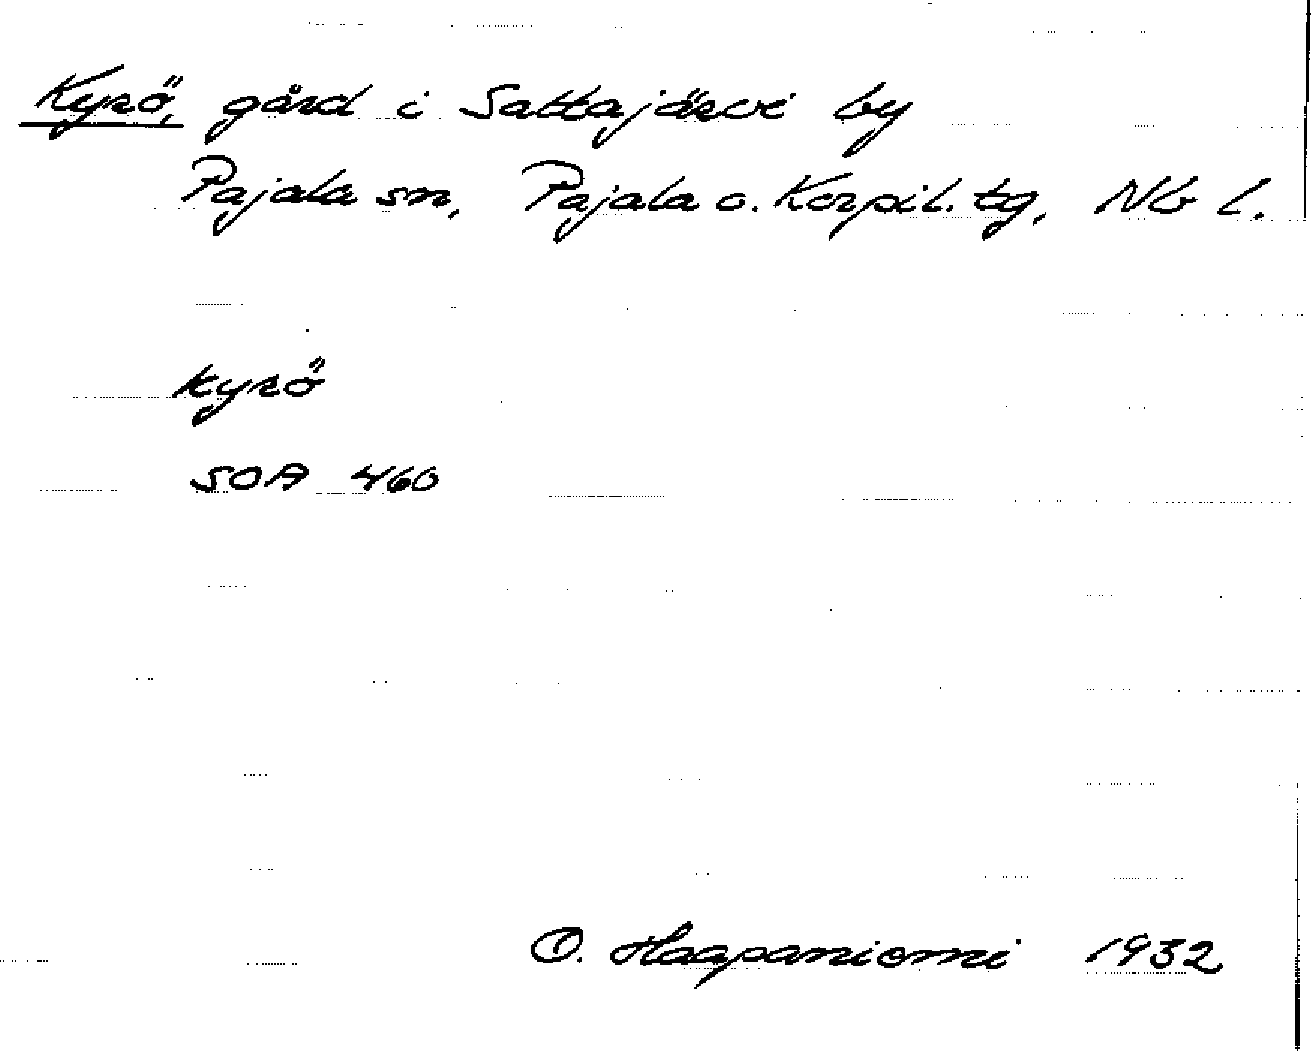 Kyrö, gård i Sattajärvi by
Pajala sn, Pajala o. Korpil. tg, Nb l.
kyrö
SOA 460
O. Haapaniemi 1932